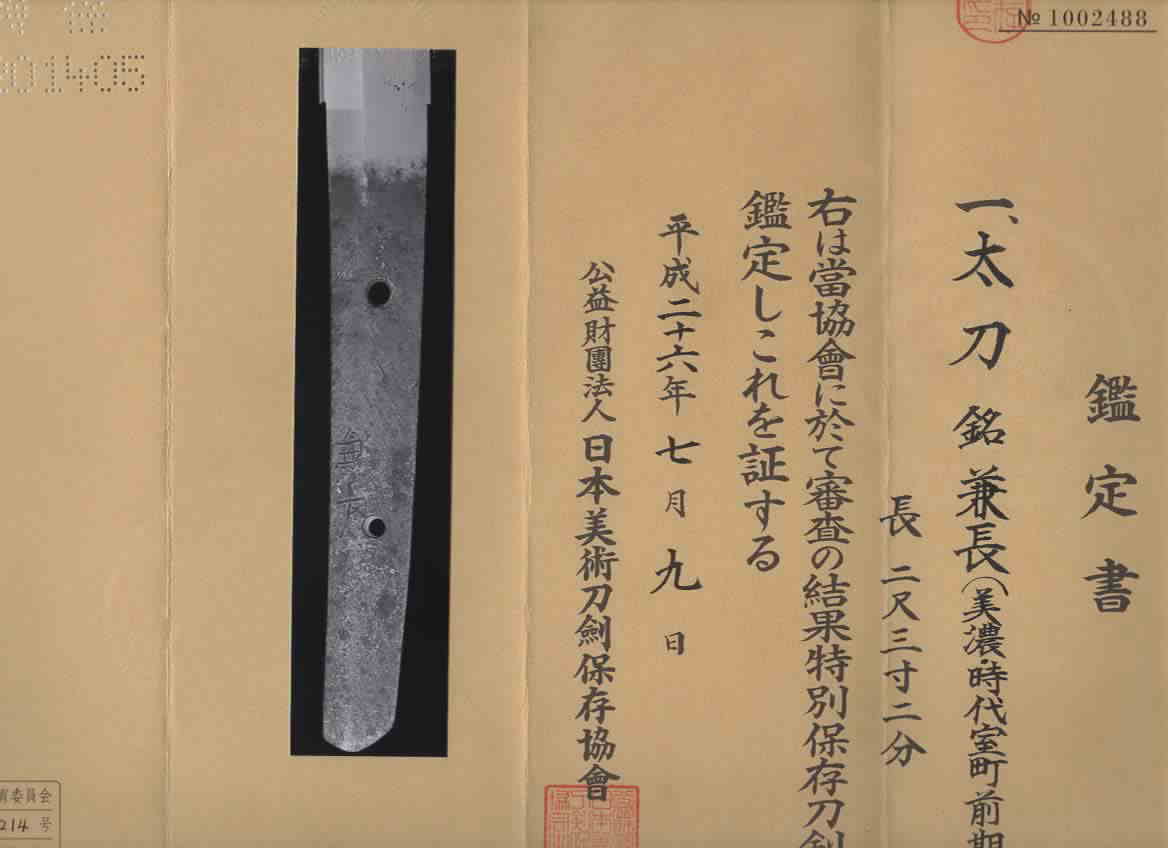 № 1002488
鑑定書
一、太刀 銘 兼長(美濃・時代室町前期
長 二尺三寸二分
右は當協會に於て審査の結果特別保存刀剣
鑑定しこれを証する
平成二十六年 七月 九日
公益財團法人 日本美術刀劍保存協會
兼長
01405
育委員会
214 号